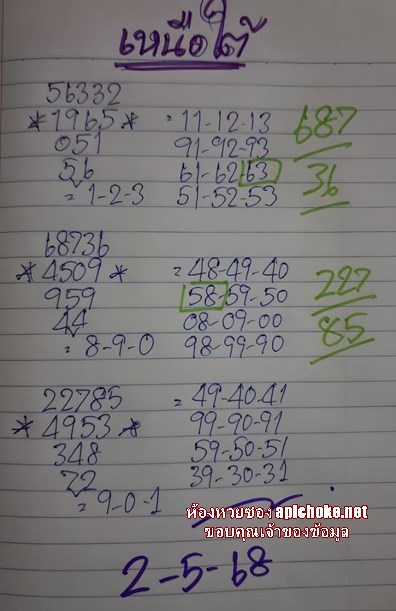 เหนือใต้
56332
*1965* = 11-12-13 687
051 91-92-93
56 61-62-63 36
= 1-2-3 51-52-53
68736
*4509* = 48-49-40 227
959 58-59-50
44 08-09-00 85
= 8-9-0 98-99-90
22785 = 49-40-41
*4953* 99-90-91
348 59-50-51
72 39-30-31
= 9-0-1
ห้องหวยซอง aplchoke.net
ขอบคุณเจ้าของข้อมูล
2-5-68